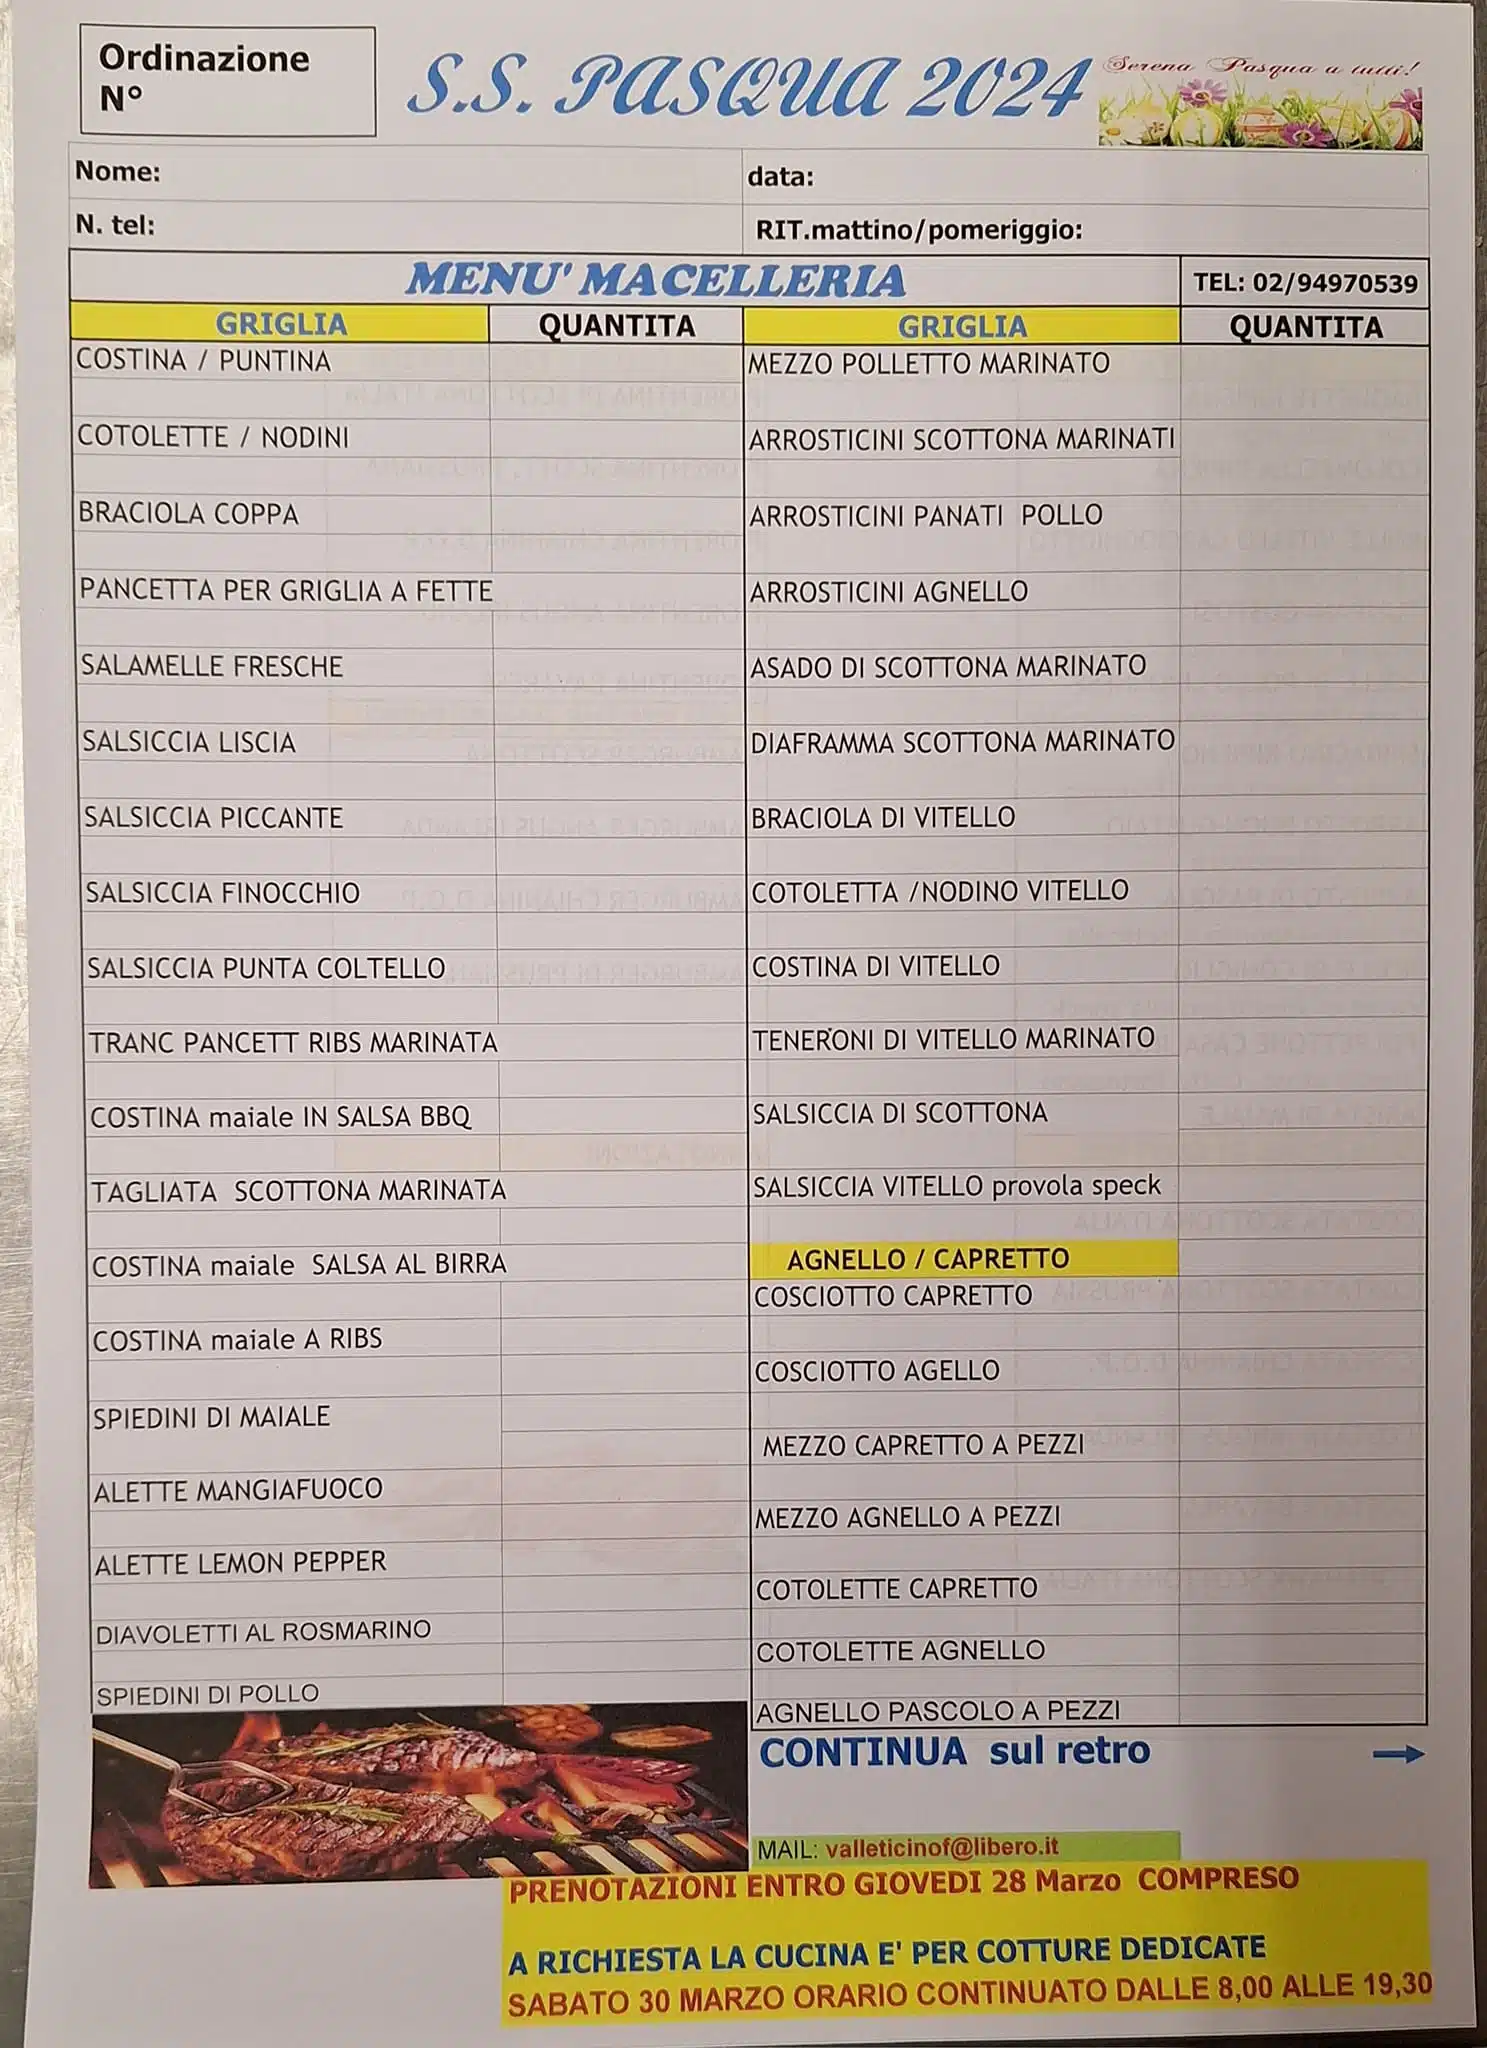 Ordinazione
N°
S.S. PASQUA 2024
Serena Pasqua a tutti!
Nome:
data:
N. tel:
RIT.mattino/pomeriggio:
MENU' MACELLERIA
TEL: 02/94970539
GRIGLIA
QUANTITA
COSTINA / PUNTINA
COTOLETTE / NODINI
BRACIOLA COPPA
PANCETTA PER GRIGLIA A FETTE
SALAMELLE FRESCHE
SALSICCIA LISCIA
SALSICCIA PICCANTE
SALSICCIA FINOCCHIO
SALSICCIA PUNTA COLTELLO
TRANC PANCETT RIBS MARINATA
COSTINA maiale IN SALSA BBQ
TAGLIATA SCOTTONA MARINATA
COSTINA maiale SALSA AL BIRRA
COSTINA maiale A RIBS
SPIEDINI DI MAIALE
ALETTE MANGIAFUOCO
ALETTE LEMON PEPPER
DIAVOLETTI AL ROSMARINO
SPIEDINI DI POLLO
GRIGLIA
QUANTITA
MEZZO POLLETTO MARINATO
ARROSTICINI SCOTTONA MARINATI
ARROSTICINI PANATI POLLO
ARROSTICINI AGNELLO
ASADO DI SCOTTONA MARINATO
DIAFRAMMA SCOTTONA MARINATO
BRACIOLA DI VITELLO
COTOLETTA /NODINO VITELLO
COSTINA DI VITELLO
TENERONI DI VITELLO MARINATO
SALSICCIA DI SCOTTONA
SALSICCIA VITELLO provola speck
AGNELLO / CAPRETTO
COSCIOTTO CAPRETTO
COSCIOTTO AGELLO
MEZZO CAPRETTO A PEZZI
MEZZO AGNELLO A PEZZI
COTOLETTE CAPRETTO
COTOLETTE AGNELLO
AGNELLO PASCOLO A PEZZI
CONTINUA sul retro
MAIL: valleticinof@libero.it
PRENOTAZIONI ENTRO GIOVEDI 28 Marzo COMPRESO
A RICHIESTA LA CUCINA E' PER COTTURE DEDICATE
SABATO 30 MARZO ORARIO CONTINUATO DALLE 8,00 ALLE 19,30